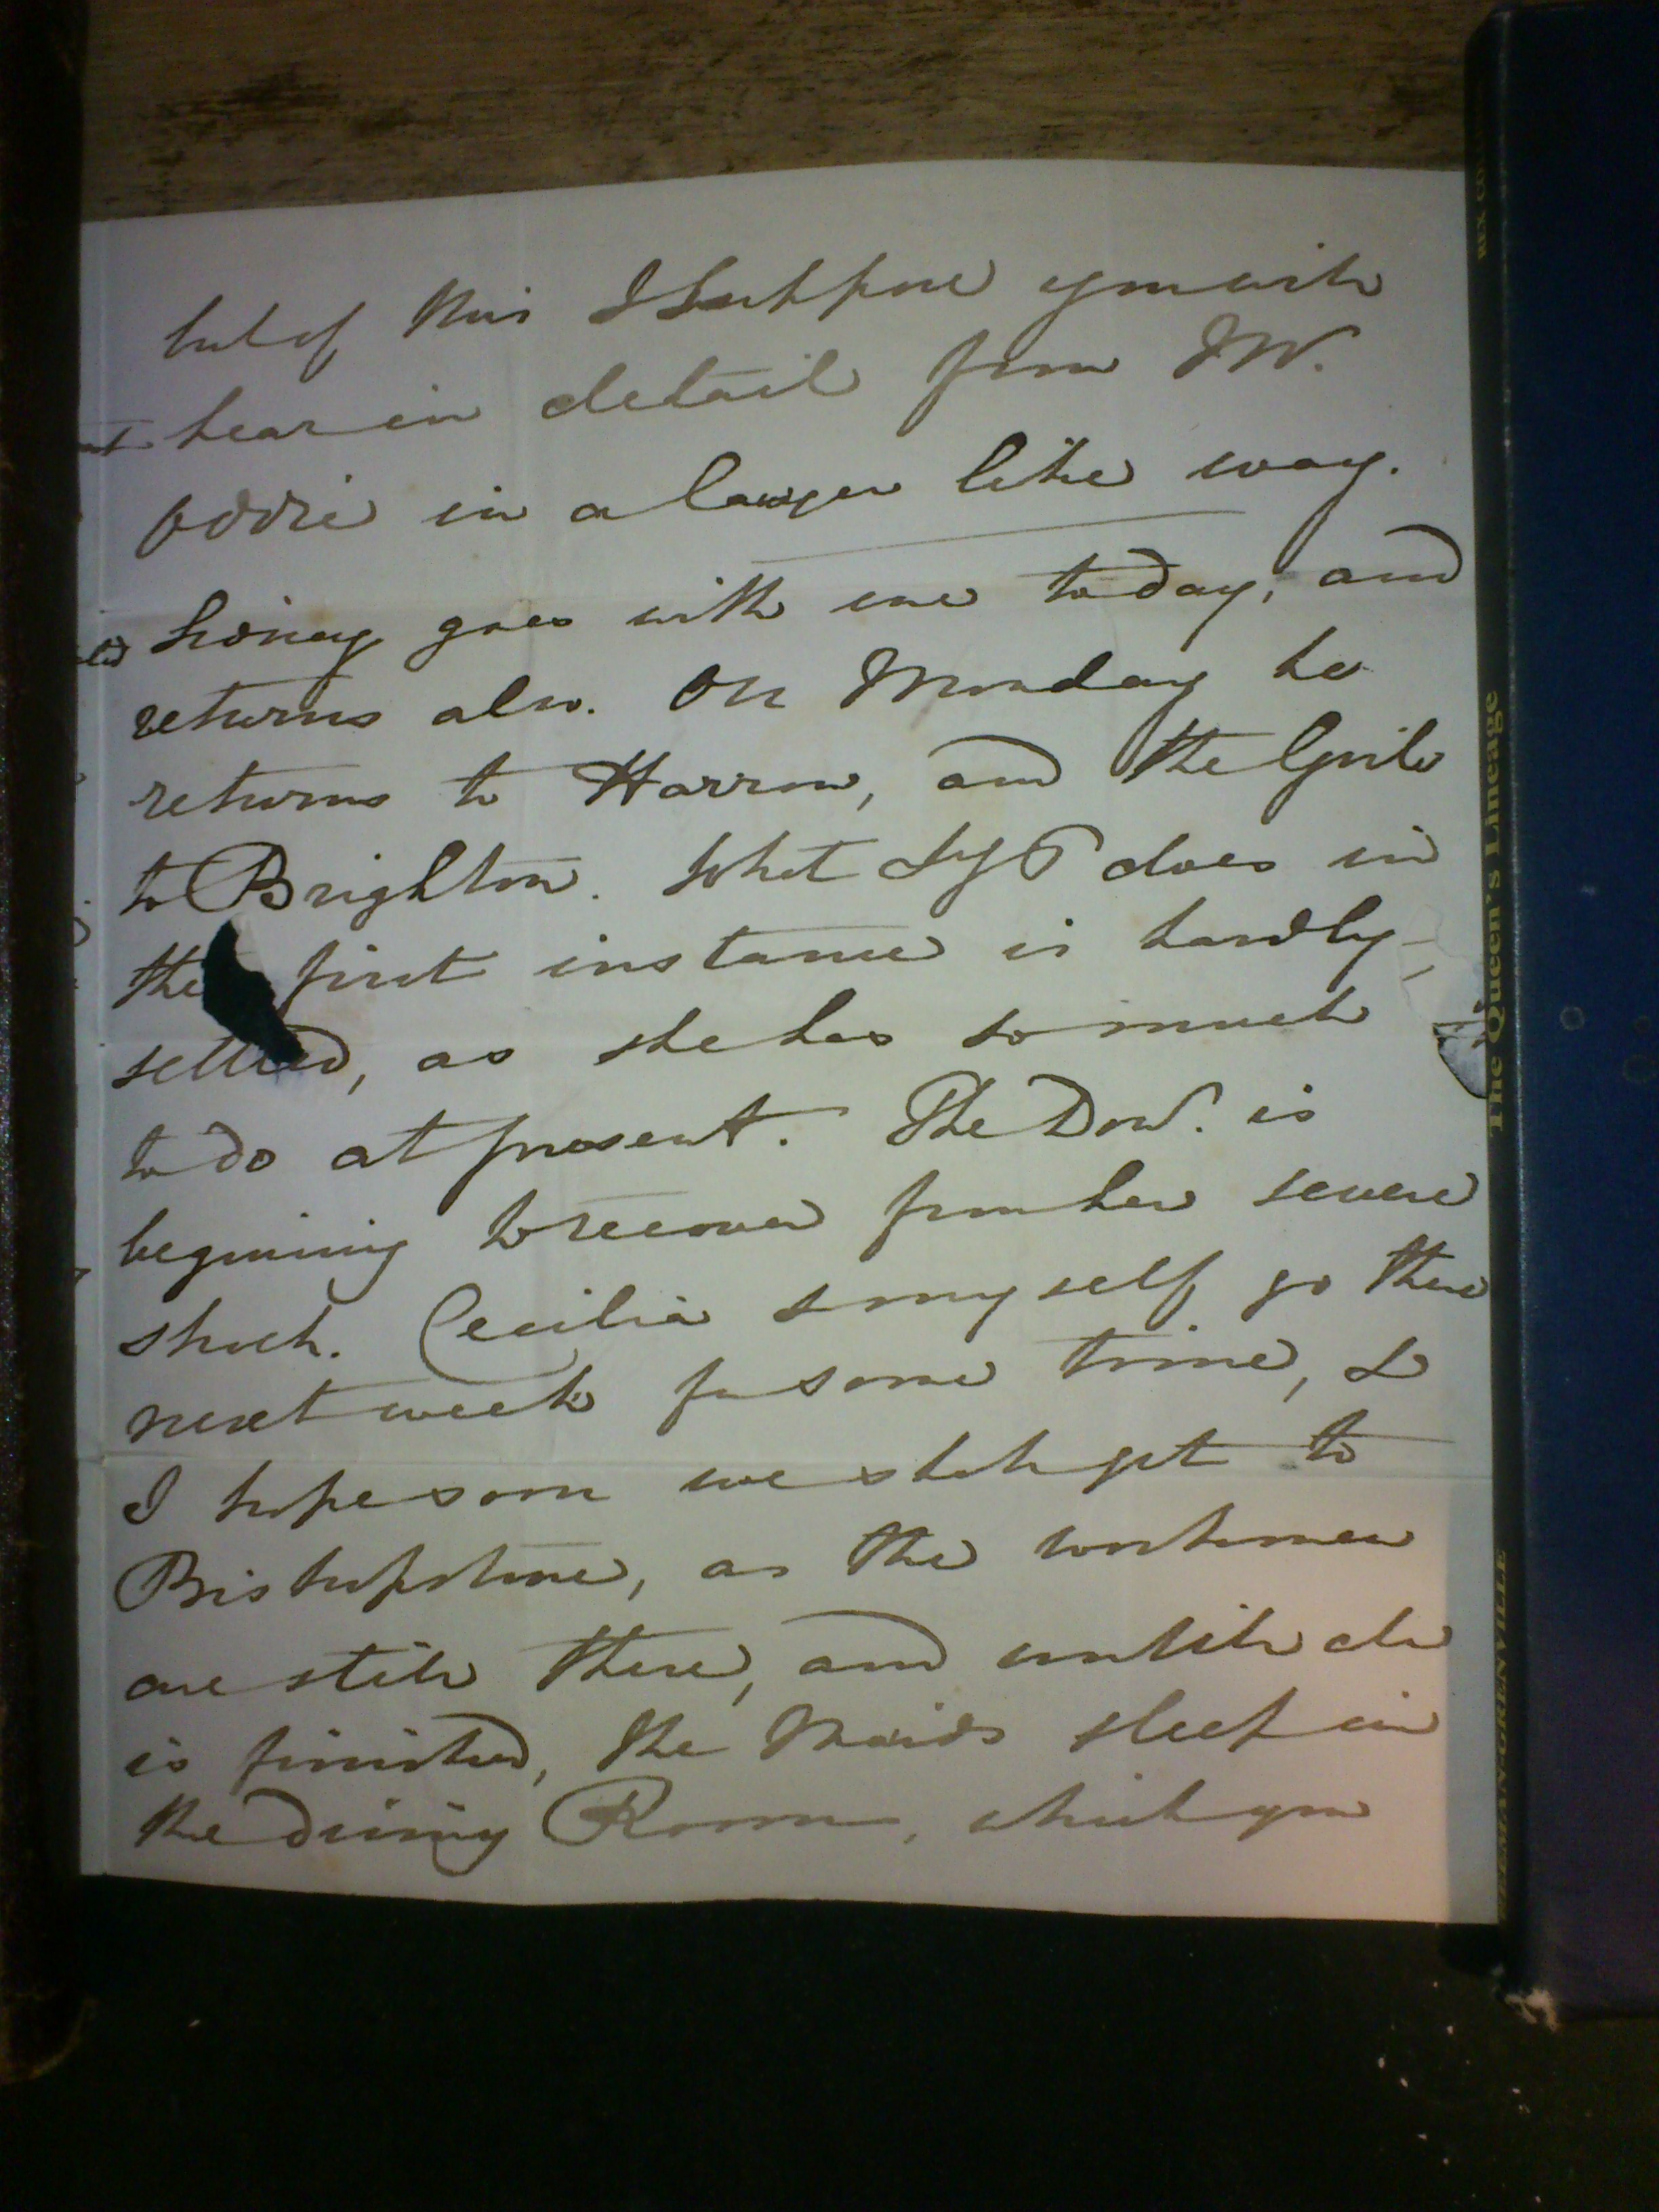 but of this I suppose you will
hear in detail from Mr.
Oddie in a lawyer like way.
Sidney goes with me today, and
returns also. On Monday he
returns to Harrow, and the Girls
to Brighton. What Ly P does in
the first instance is hardly
settled, as she has so much
to do at present. The Dow. is
beginning to recover from her severe
shock. Cecilia & myself go there
next week for some time, &
I hope soon we shall get to
Bishopstone, as the workmen
are still there, and until all
is finished, the Maids sleep in
the dining Room, which you
The Queen's Lineage
FREEMAN-GRENVILLE
REX CO